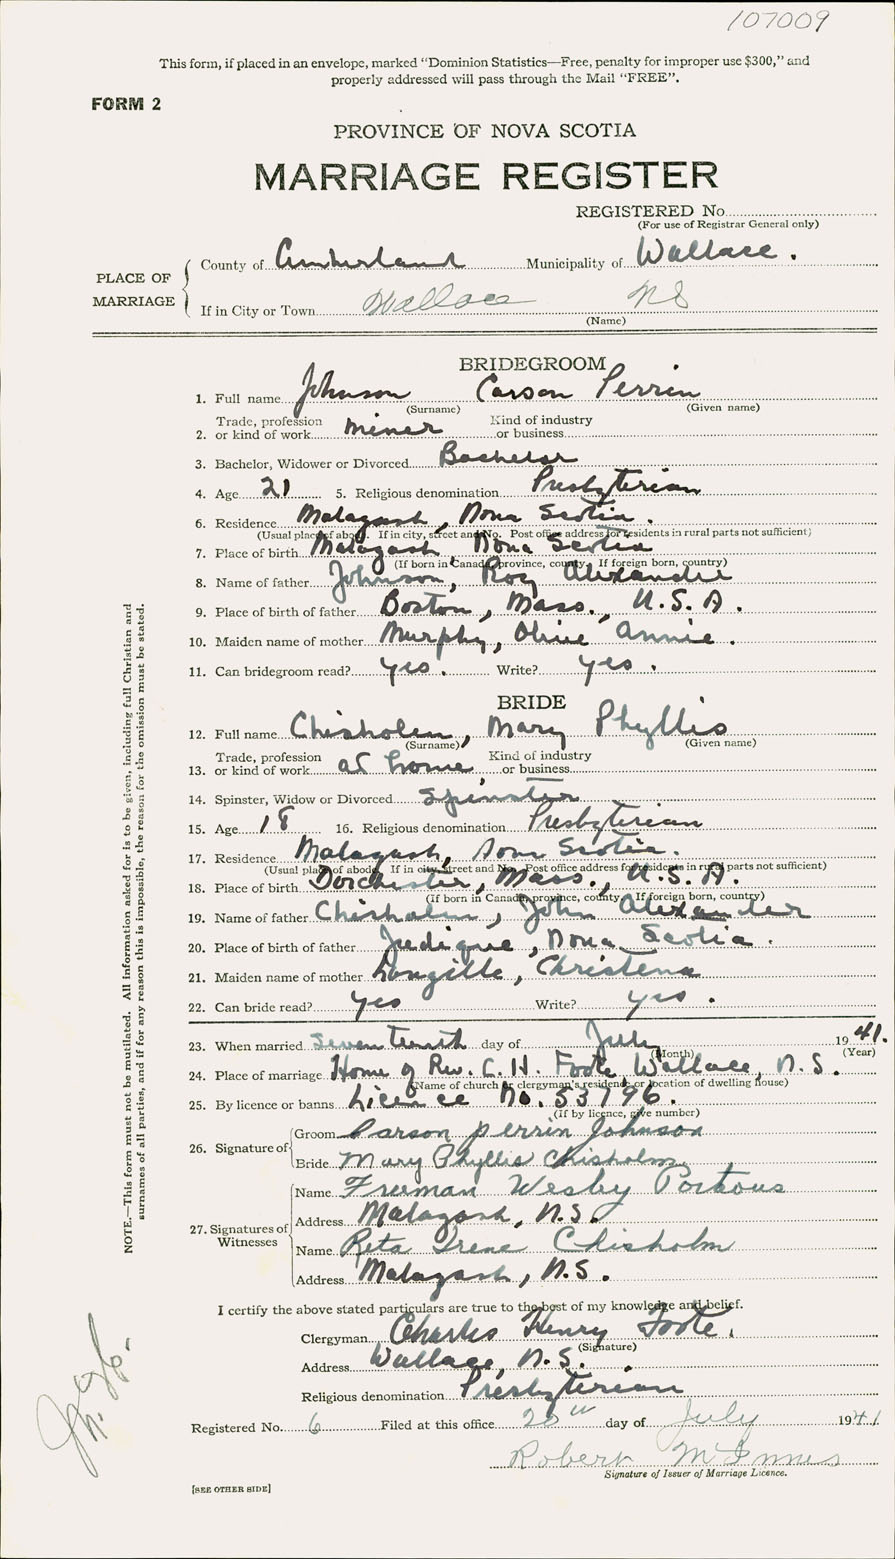 107009
This form, if placed in an envelope, marked “Dominion Statistics—Free, penalty for improper use $300,” and
properly addressed will pass through the Mail “FREE”.
FORM 2
PROVINCE OF NOVA SCOTIA
MARRIAGE REGISTER
REGISTERED No.
(For use of Registrar General only)
PLACE OF MARRIAGE
County of Cumberland Municipality of Wallace.
If in City or Town Wallace NS
(Name)
BRIDEGROOM
1. Full name Johnson Carson Perrin
(Surname) (Given name)
Trade, profession Kind of industry
2. or kind of work miner or business
3. Bachelor, Widower or Divorced Bachelor
4. Age 21 5. Religious denomination Presbyterian
6. Residence Malagash, Nova Scotia.
(Usual place of abode. If in city, street and No. Post office address for residents in rural parts not sufficient)
7. Place of birth Malagash, Nova Scotia
(If born in Canada, province, county. If foreign born, country)
8. Name of father Johnson, Roy Alexander
9. Place of birth of father Boston, Mass., U.S.A.
10. Maiden name of mother Murphy, Olive Annie.
11. Can bridegroom read? yes. Write? yes.
BRIDE
12. Full name Chisholm, Mary Phyllis
(Surname) (Given name)
Trade, profession Kind of industry
13. or kind of work at home, or business
14. Spinster, Widow or Divorced Spinster
15. Age 18 16. Religious denomination Presbyterian
17. Residence Malagash, Nova Scotia.
(Usual place of abode. If in city, street and No. Post office address for residents in rural parts not sufficient)
18. Place of birth Dorchester, Mass., U.S.A.
(If born in Canada, province, county. If foreign born, country)
19. Name of father Chisholm, John Alexander
20. Place of birth of father Judique, Nova Scotia.
21. Maiden name of mother Langille, Christena
22. Can bride read? yes Write? yes.
23. When married seventeenth day of July 1941.
(Month) (Year)
24. Place of marriage Home of Rev. C. H. Foote, Wallace, N.S.
(Name of church or clergyman's residence or location of dwelling house)
25. By licence or banns Licence No. 53796.
(If by licence, give number)
26. Signature of
Groom Carson Perrin Johnson
Bride Mary Phyllis Chisholm
27. Signatures of Witnesses
Name Freeman Wesley Porteous
Address Malagash, N.S.
Name Reta Irene Chisholm
Address Malagash, N.S.
I certify the above stated particulars are true to the best of my knowledge and belief.
Clergyman Charles Henry Foote.
(Signature)
Address Wallace, N.S.
Religious denomination Presbyterian
Registered No. 6 Filed at this office 26th day of July 1941
Robert McInnes
Signature of Issuer of Marriage Licence.
[SEE OTHER SIDE]
NOTE.—This form must not be mutilated. All information asked for is to be given, including full Christian and
surnames of all parties, and if for any reason this is impossible, the reason for the omission must be stated.